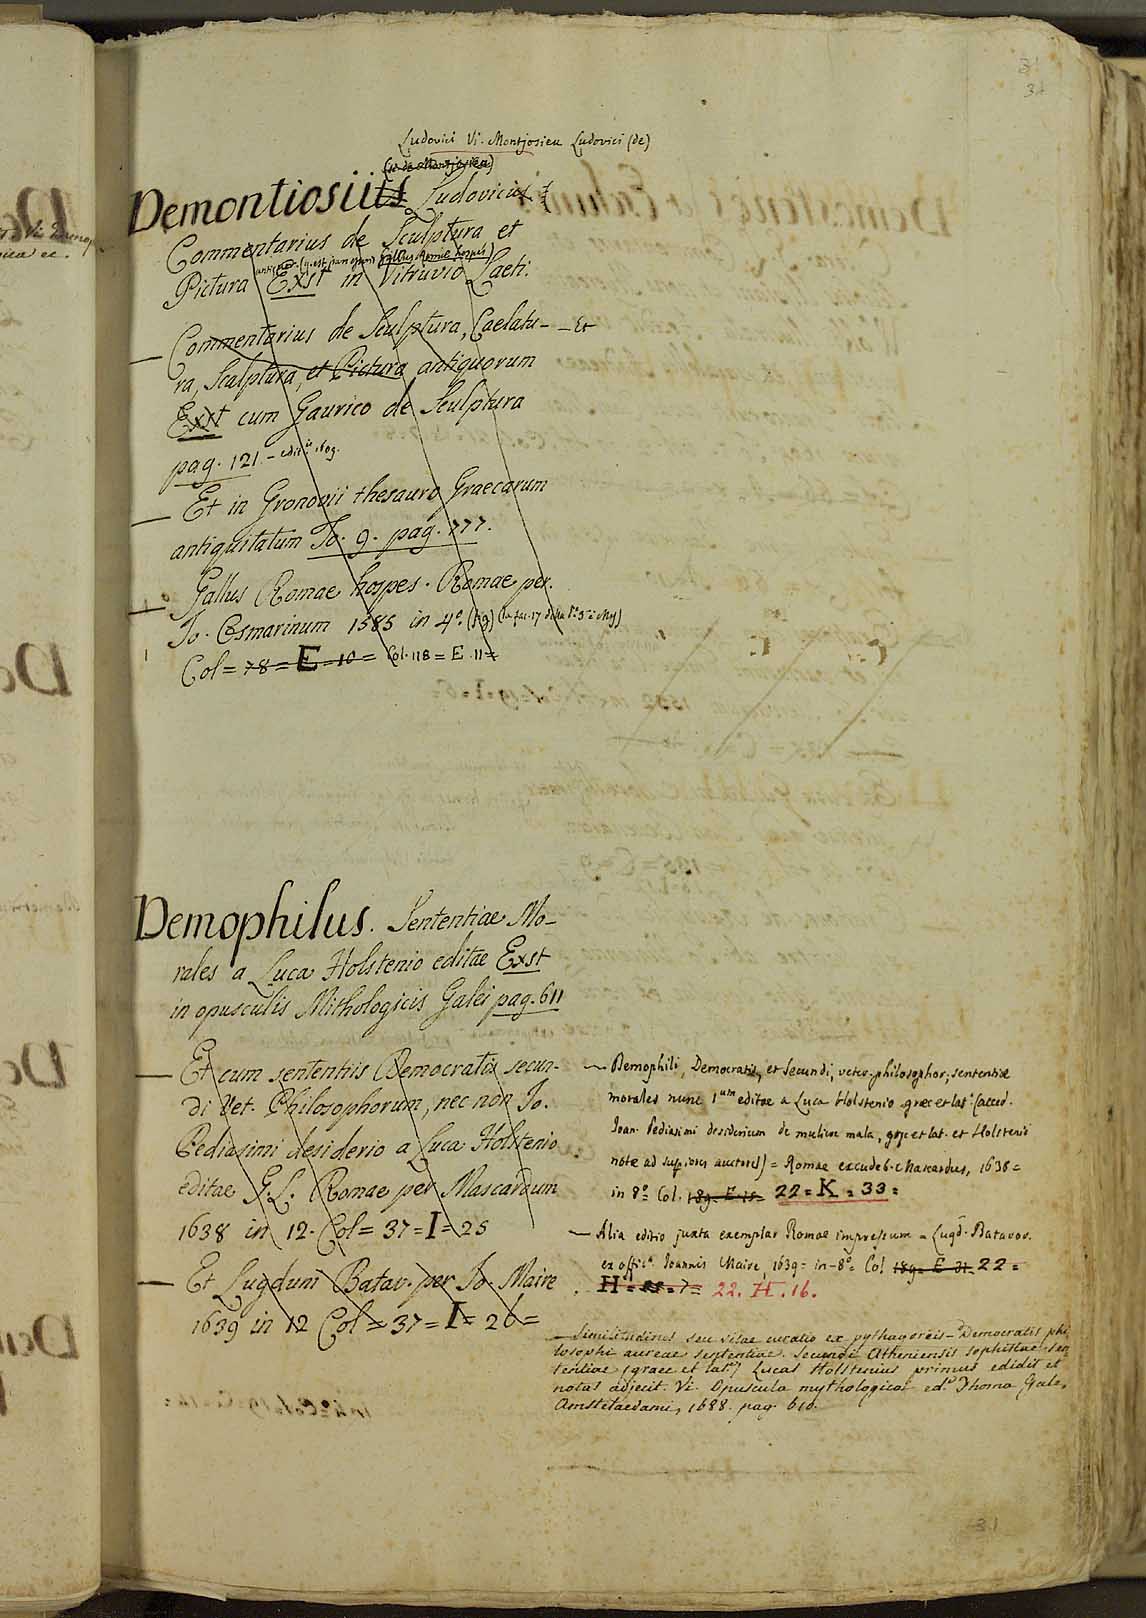 31
Ludovici Vi. Montjosieu Ludovici (de)
Demontiosius Ludovicus
Commentarius de Sculptura et
(Gallus Romae hospes)
Pictura Exst in Vitruvio Laeti.
— Commentarius de Sculptura, Caelatu- — Et
ra, Scalptura, et Pictura antiquorum
Exst cum Gaurico de Sculptura
pag. 121 - edit. 1609.
— Et in Gronovii thesauro Graecarum
antiquitatum To. 9. pag. 777.
— Gallus Romae hospes. Romae per.
Io. Osmarinum 1585 in 4º. (fig)
Col = 78 = E = 10 = Col. 118 = E. 11 =
Demophilus. Sententiae Mo-
rales a Luca Holstenio editae Exst
in opusculis Mithologicis Galei pag. 611
— Et cum sententiis Democratis secun-
di Vet. Philosophorum, nec non Io.
Pediasimi desiderio a Luca Holstenio
editae G. L. Romae per Mascardum
1638 in 12. Col = 37 = I = 25
— Et Lugduni Batav. per Io. Maire
1639 in 12 Col = 37 = I = 26 =
— Demophili, Democratis, et Secundi, veter. philosophor; sententiae
morales nunc 1um editae a Luca Holstenio graec et lat. (acced.
Ioan. Pediasimi desiderium de muliere mala, graec et lat. et Holstenii
notae ad supiores auctores) = Romae excudeb. Mascardus, 1638 =
in 8º Col. 189. E. 15. 22 = K = 33 =
— Alia editio juxta exemplar Romae impressum = Lugd. Batavor.
ex offica. Ioannis Maire, 1639 = in-8º = Col 189. E. 31. 22 =
H = 7 = 22. H. 16.
— Similitudines seu vitae curatio ex pythagoreis — Democratis phi-
losophi aureae sententiae. Secundi Atheniensis sophistae sen-
tentiae (graec et lat.) Lucas Holstenius primus edidit et
notas adjecit. Vi. Opuscula mythologica ed. Thoma Gale,
Amstelaedami, 1688. pag. 610.
31